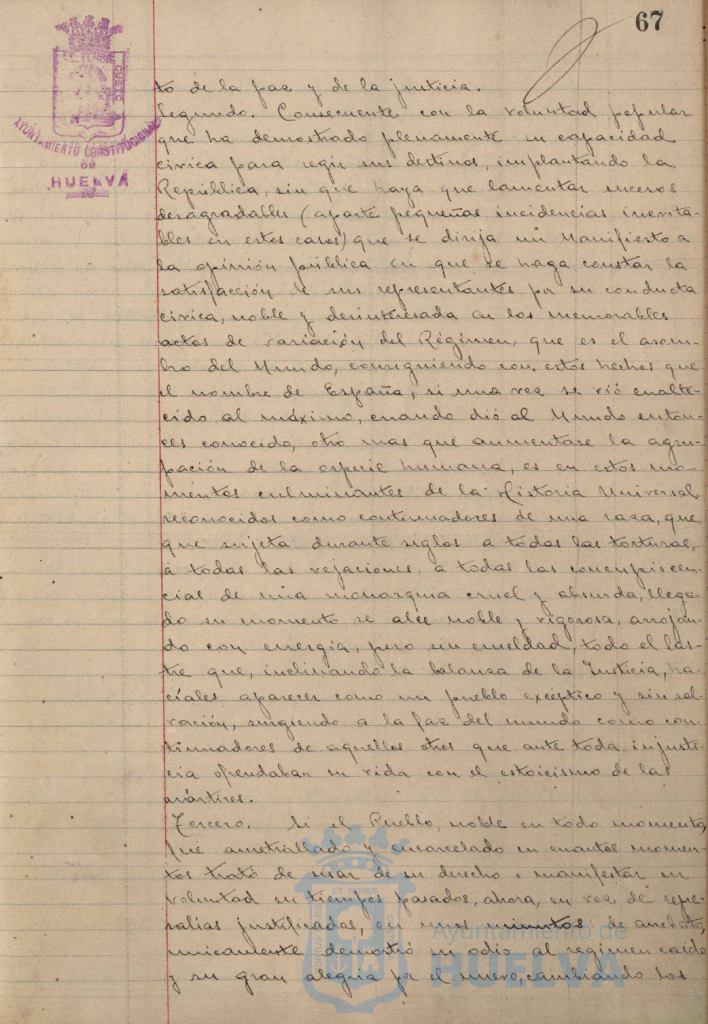 67
ET TERRÆ
CUSTO
AYUNTAMIENTO CONSTITUCIONAL
DE
HUELVA
to de la paz y de la justicia.
Segundo. Consecuente con la voluntad popular
que ha demostrado plenamente su capacidad
cívica para regir sus destinos, implantando la
República, sin que haya que lamentar sucesos
desagradables (aparte pequeñas incidencias inevita-
bles en estos casos) que se dirija un Manifiesto a
la opinión pública en que se haga constar la
satisfacción de sus representantes por su conducta
cívica, noble y desinteresada en los memorables
actos de variación del Régimen, que es el asom-
bro del Mundo, consiguiendo con estos hechos que
el nombre de España, si una vez se vió enalte-
cido al máximo, cuando dió al Mundo enton-
ces conocido, otro mas que aumentase la agru-
pación de la especie humana, es en estos mo-
mentos culminantes de la Historia Universal,
reconocidos como continuadores de una raza, que
que sujeta durante siglos a todas las torturas,
a todas las vejaciones, a todas las concupiscen-
cias de una monarquia cruel y absurda, llega-
do su momento se alce noble y vigorosa, arrojan-
do con energia, pero sin crueldad, todo el las-
tre que, inclinando la balanza de la Justicia, ha-
cíales aparecer como un pueblo excéptico y sin sal-
vación, surgiendo a la faz del mundo como con-
tinuadores de aquellos otros que ante toda injusti-
cia ofrendaban su vida con el estoicismo de los
mártires.
Tercero. Si el Pueblo, noble en todo momento,
fue ametrallado y encarcelado en cuantos momen-
tos trató de usar de su derecho a manifestar su
voluntad en tiempos pasados, ahora, en vez de repre-
salias justificadas, en unos minutos de arrebato,
unicamente demostró su odio al regimen caido
y su gran alegria por el nuevo, cambiando los
ET TERRÆ
Ayuntamiento de
HUELVA